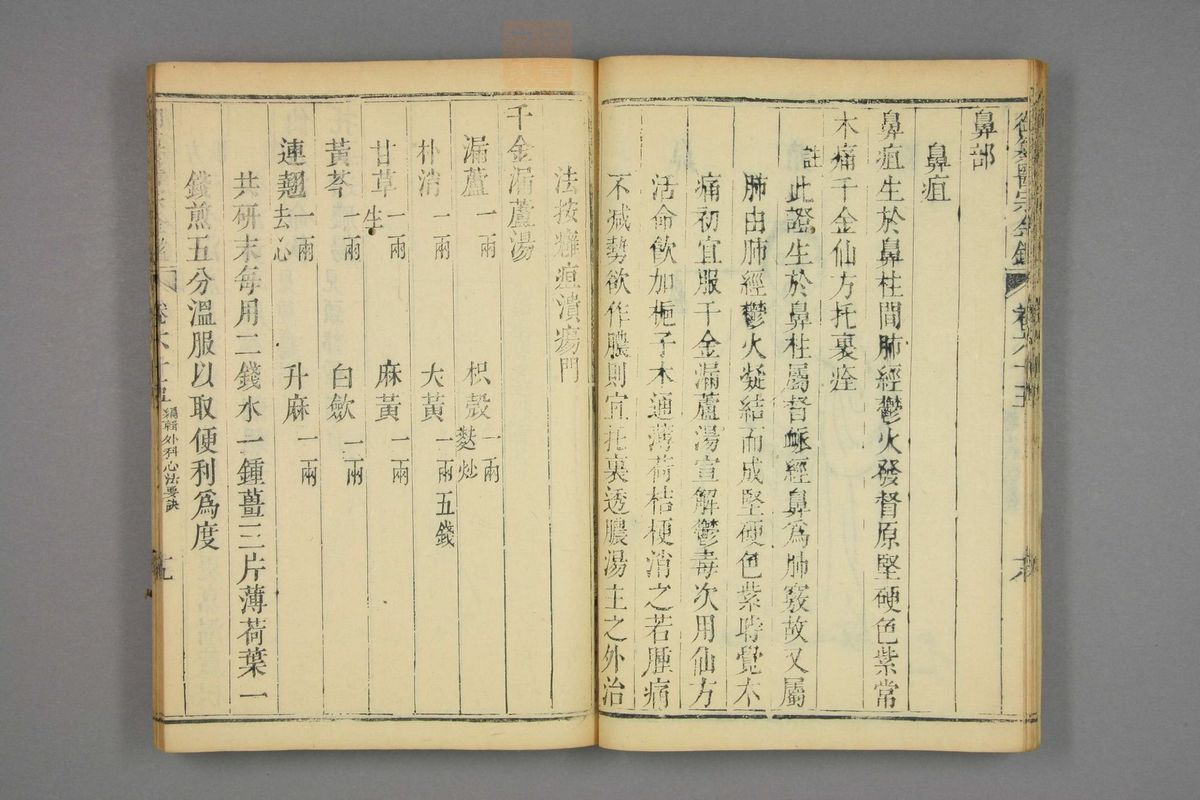 御纂醫宗金鑑 卷六十五
鼻部
鼻疽
鼻疽生於鼻柱間肺經鬱火發督原堅硬色紫常
木痛千金仙方托裏痊
註此證生於鼻柱屬督脈經鼻為肺竅故又屬
肺由肺經鬱火凝結而成堅硬色紫時覺木
痛初宜服千金漏蘆湯宣解鬱毒次用仙方
活命飲加梔子木通薄荷桔梗消之若腫痛
不減勢欲作膿則宜托裏透膿湯主之外治
法按癰疽潰瘍門
千金漏蘆湯
漏蘆一兩 枳殼一兩麩炒
朴消一兩 大黃一兩五錢
甘草一兩生 麻黃一兩
黃芩一兩 白歛一兩
連翹一兩去心 升麻一兩
共研末每用二錢水一鍾薑三片薄荷葉一
錢煎五分溫服以取便利為度
卷六十五 編輯外科心法要訣 九